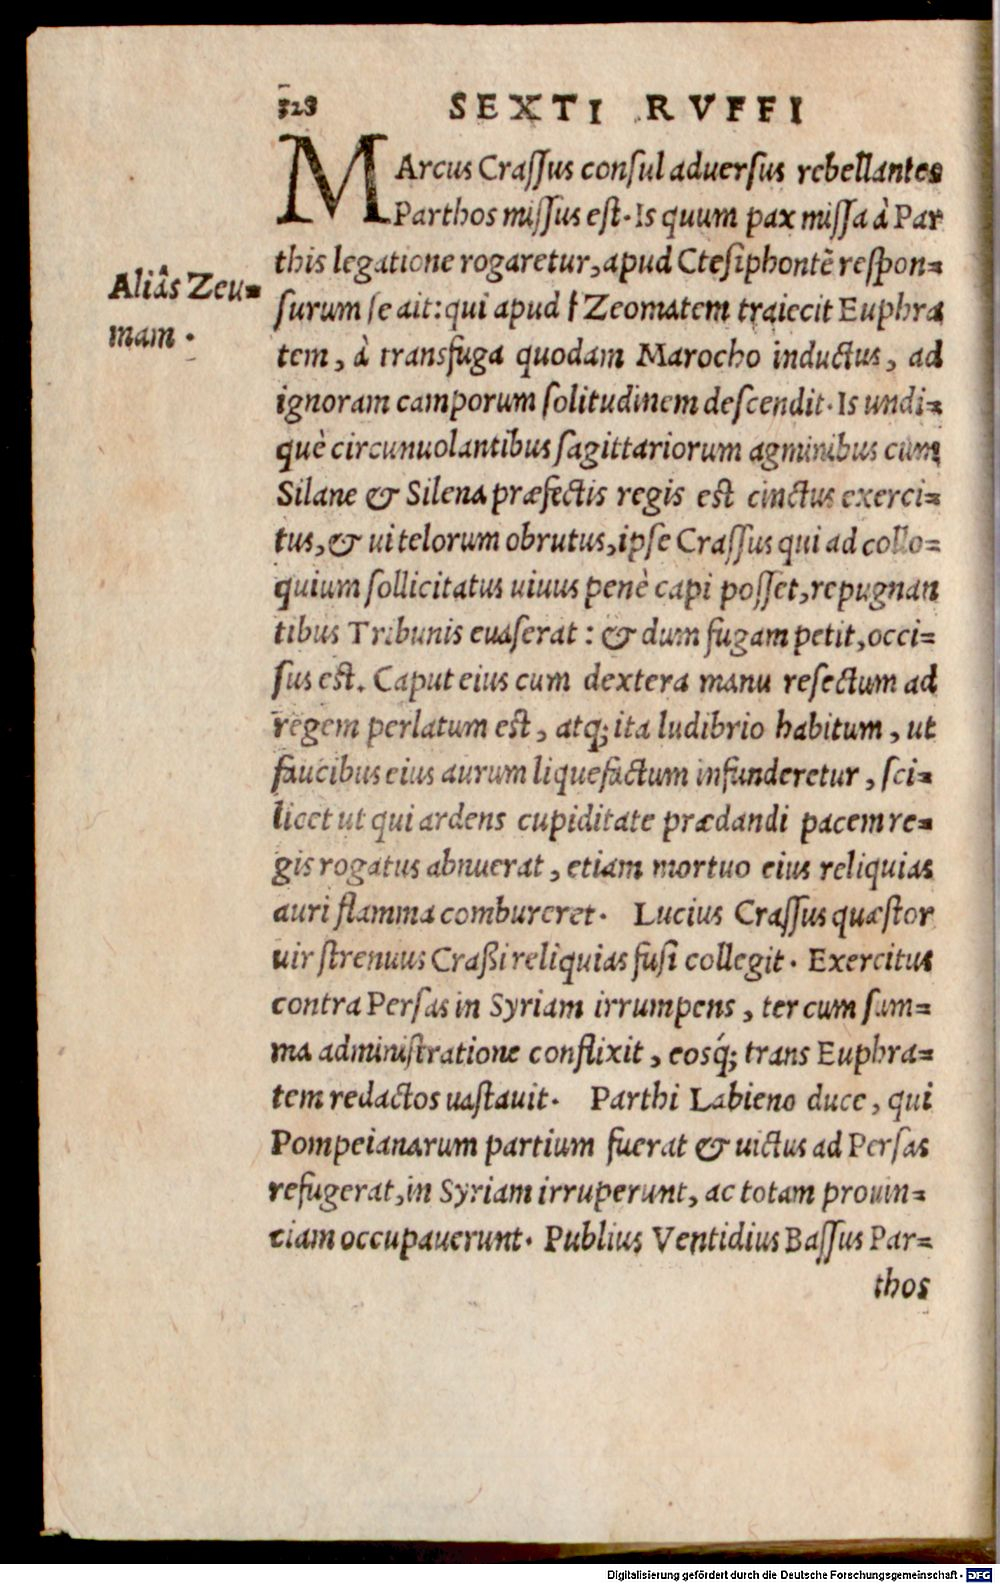 328 SEXTI RVFFI
MArcus Craſſus conſul aduerſus rebellantes
Parthos miſſus eſt. Is quum pax miſſa à Par
this legatione rogaretur, apud Cteſiphontẽ reſpon=
Aliâs Zeu=
ſurum ſe ait: qui apud † Zeomatem traiecit Euphra
mam.
tem, à transfuga quodam Marocho inductus, ad
ignoram camporum ſolitudinem deſcendit. Is undi=
què circunuolantibus ſagittariorum agminibus cum
Silane & Silena præfectis regis eſt cinctus exerci=
tus, & ui telorum obrutus, ipſe Craſſus qui ad collo=
quium ſollicitatus uiuus penè capi poſſet, repugnan
tibus Tribunis euaſerat: & dum fugam petit, occi=
ſus eſt. Caput eius cum dextera manu reſectum ad
regem perlatum eſt, atq; ita ludibrio habitum, ut
faucibus eius aurum liquefactum infunderetur, ſci=
licet ut qui ardens cupiditate prædandi pacem re=
gis rogatus abnuerat, etiam mortuo eius reliquias
auri flamma combureret. Lucius Craſſus quæſtor
uir ſtrenuus Craßi reliquias fuſi collegit. Exercitus
contra Perſas in Syriam irrumpens, ter cum ſum=
ma adminiſtratione conflixit, eosq́; trans Euphra=
tem redactos uaſtauit. Parthi Labieno duce, qui
Pompeianarum partium fuerat & uictus ad Perſas
refugerat, in Syriam irruperunt, ac totam prouin=
ciam occupauerunt. Publius Ventidius Baſſus Par=
thos
Digitalisierung gefördert durch die Deutsche Forschungsgemeinschaft - DFG